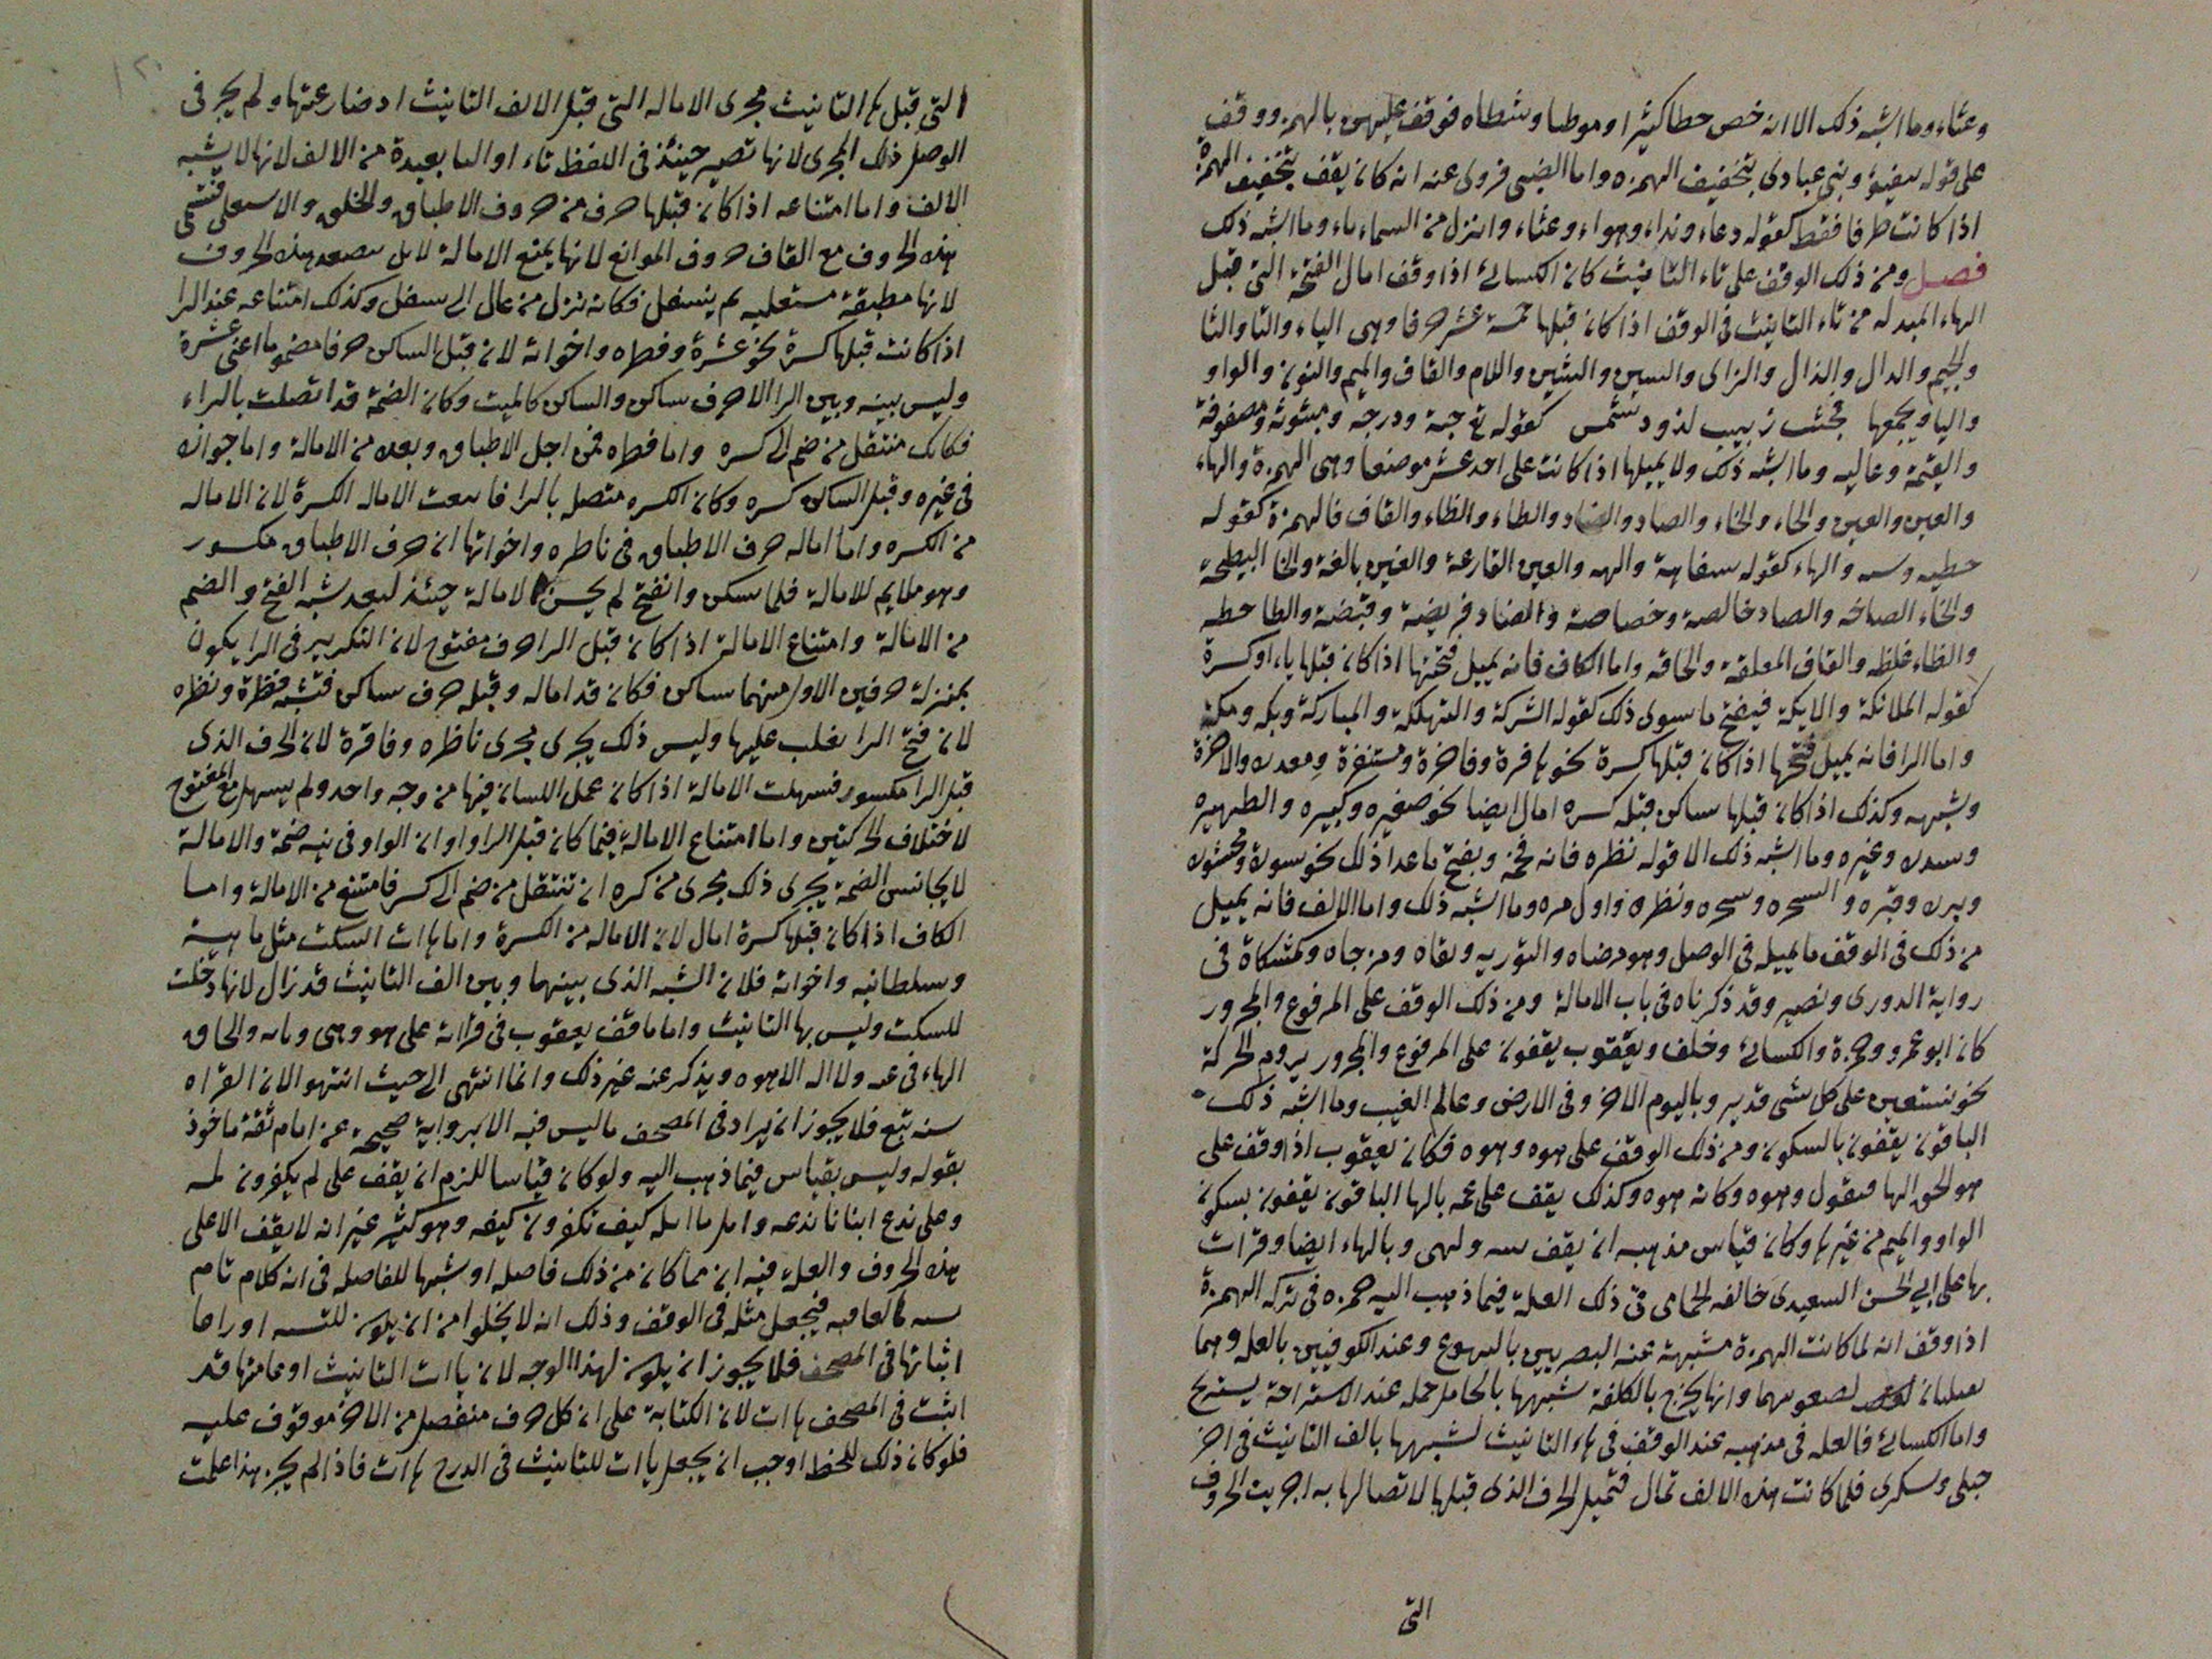 وغثاء وما اشبه ذلك الا انه خص خطا كثيرا وموطيا وشطاه فوقف عليهن بالهمز ووقف
على قوله سيفيؤ ونبئ عبادى بتخفيف الهمزه واما الضبى فروى عنه انه كان يقف بتخفيف الهمزة
اذا كانت طرفا فقط كقوله دعاء ونداء وهواء وغثاء وانزل من السماء ماء وما اشبه ذلك
فصل ومن ذلك الوقف على تاء التانيث كان الكسائى اذا وقف امال الفتحة التى قبل
الهاء المبدله من تاء التانيث فى الوقف اذا كان قبلها خمسة عشر حرفا وهى الياء والتا والثا
والجيم والدال والذال والزاى والسين والشين واللام والفاف والميم والنون والواو
واليا ويجمعها فجثت زبيب لذود شمس كقوله تع جبة ودرجه ومبثوثه ومصفوفة
والقيمة وعاليه وما اشبه ذلك ولا يميلها اذا كانت على احد عشر موضعا وهى الهمزة والهاء
والعين والغين والحاء والخاء والصاد والضاد والطاء والظاء والقاف فالهمزة كقوله
خطيه وسه والهاء كقوله سفاهة والهه والعين القارعة والغين بالغة والحا النطيحة
والخاء الصاخه والصاد خالصة وخصاصة والضاد فريضة وقبضة والطا حطه
والظاء غلظه والقاف المعلقة والحاقه واما الكاف فانه يميل فتحتها اذا كان قبلها ياء او كسرة
كقوله الملائكة والايكة فيفتح ما سوى ذلك كقوله الشركة والتهلكة والمباركة وبكه ومكة
واما الرا فانه يميل فتحها اذا كان قبلها كسرة نحو كافرة وفاخرة ومستنفرة ومعدره والاخرة
وشبهه وكذلك اذا كان قبلها ساكن قبله كسره امال ايضا نحو صغيره وكبيره والظهيره
وسدره وغيره وما اشبه ذلك الا قوله نظره فانه فخم ويفتح ما عدا ذلك نحو سورة ومحشوره
وبرره وقتره والسحره وسحره ونظرة واول مره وما اشبه ذلك واما الالف فانه يميل
من ذلك فى الوقف ما يميله فى الوصل وهو مرضاه والتوريه وتقاه ومزجاه وكمشكاة فى
رواية الدورى ونصير وقد ذكرناه فى باب الامالة ومن ذلك الوقف على المرفوع والمجرور
كان ابو عمرو وحمزة والكسائى وخلف ويعقوب يقفون على المرفوع والمجرور بروم الحركة
نحو نستعين على كل شى قدير وباليوم الاخر وفى الارض وعالم الغيب وما اشبه ذلك
الباقون يقفون بالسكون ومن ذلك الوقف على هوه وهوه فكان يعقوب اذا وقف على
هو لحق الها فيقول وهوه وكانه هوه وكذلك يقف على عمه بالها الباقون يقفون بسكون
الواو والميم من غير ها وكان قياس مذهبه ان يقف ولهى وبالهاء ايضا وقرات
بها على ابي الحسن السعيدى خالفه الحمامى فى ذلك العلة فيما ذهب اليه حمزه فى تركه الهمزة
اذا وقف انه لما كانت الهمزة مشبهة عند البصريين بالتهوع وعند الكوفيين بالعلة وهما
لصعوبتهما وانها يخرج بالكلفة شبهها بالحامل حمله عند الاستراحة يستريح
واما الكسائى فالعله فى مذهبه عند الوقف فى هاء التانيث لشبهها بالف التانيث فى اخر
حبلى وسكرى فلما كانت هذه الالف تمال فتميل الحرف الذى قبلها لاتصالها به اجريت الحروف
التى
التى قبل هاء التانيث مجرى الاماله التى قبل الالف التانيث اذ ضارعتها ولم يجر فى
الوصل ذلك المجرى لانها تصير حينئذ فى اللفظ تاء او اليا بعيدة من الالف لانها لا يشبه
الالف واما امتناعه اذا كان قبلها حرف من حروف الاطباق والحلق والاستعلى فتسمى
هذه الحروف مع القاف حروف الموانع لانها يمنع الامالة لاىل بصعد هذه الحروف
لانها مطبقة مستعليه لم ينسفل فكانه نزل من عال الى سفل وكذلك امتناعه عند الرا
اذا كانت قبلها كسرة نحو عشرة وفطره واخواته لان قبل الساكن حرفا مضموما اعنى عشرة
وليس بينه وبين الرا الا حرف ساكن والساكن كالميت وكان الضمة قد اتصلت بالراء
فكانك منتقل من ضم الى كسره واما فطره فمن اجل الاطباق وبعده من الامالة واما جوازه
فى غيره وقبل الساكن كسره وكان الكسره متصل بالرا فاتبعت الاماله الكسرة لان الاماله
من الكسره واما اماله حرف الاطباق فى ناظره واخواتها ان حرف الاطباق مكسور
وهو ملايم للامالة فلما سكن وانفتح لم يحسن الامالة حينئذ لبعد شبه الفتح والضم
من الامالة وامتناع الامالة اذا كان قبل الرا حرف مفتوح لان التكرير فى الرا يكون
بمنزلة حرفين الاول منهما ساكن فكان قد اماله وقبله حرف ساكن فتشبه فنظرة ونظره
لان فتح الرا يغلب عليها وليس ذلك يجرى مجرى ناظره وفاقرة لان الحرف الذى
قبل الرا مكسور فسهلت الامالة اذا كان عمل اللسان فيها من وجه واحد ولم يسهل مع المفتوح
لاختلاف الحركتين واما امتناع الامالة فيما كان قبل الرا واو ان الواو فى نية ضمة والامالة
لا يجانس الضمة يجرى ذلك مجرى من كره ان تنتقل من ضم الى كسر فامتنع من الامالة واما
الكاف اذا كان قبلها كسرة امال لان الاماله من الكسرة واما هاات السكت مثل ماهية
وسلطانيه واخواته فلان الشبه الذى بينهما وبين الف التانيث قد زال لانها دخلت
للسكت وليس بها التانيث واما ماقف يعقوب فى قراته على هو وهى وما به والحاق
الهاء فى عمه ولا اله الا هوه ويذكر عنه غير ذلك وانما انتهى الى حيث انتهو الان القراه
سنه تتبع فلا يجوز ان يراد فى المصحف ما ليس فيه الا برواية صحيحة عن امام ثقة ماخوذ
بقوله وليس بقياس فيما ذهب اليه ولو كان قياسا للزم ان يقف على لم يكفرون لمه
وعلى ندع ابنانا ندعه كيف تكفرون كيفه وهو كثير غير انه لا يقف الا على
هذه الحروف والعلة فيه ان مما كان من ذلك فاصله او شبهها للفاصله فى انه كلام تام
فيجعل مثله فى الوقف وذلك انه لا يخلوا من ان يكون
اثباتها فى المصحف فلا يجوز ان يكون لهذا الوجه لان ياات التانيث او عامتها قد
اثبت فى المصحف هاات لان الكتابة على ان كل حرف منفصل من الاخر موقوف عليه
فلو كان ذلك للخط اوجب ان يجعل ياات للتانيث فى الدرج هاات فاذا لم يجز هذا علمت